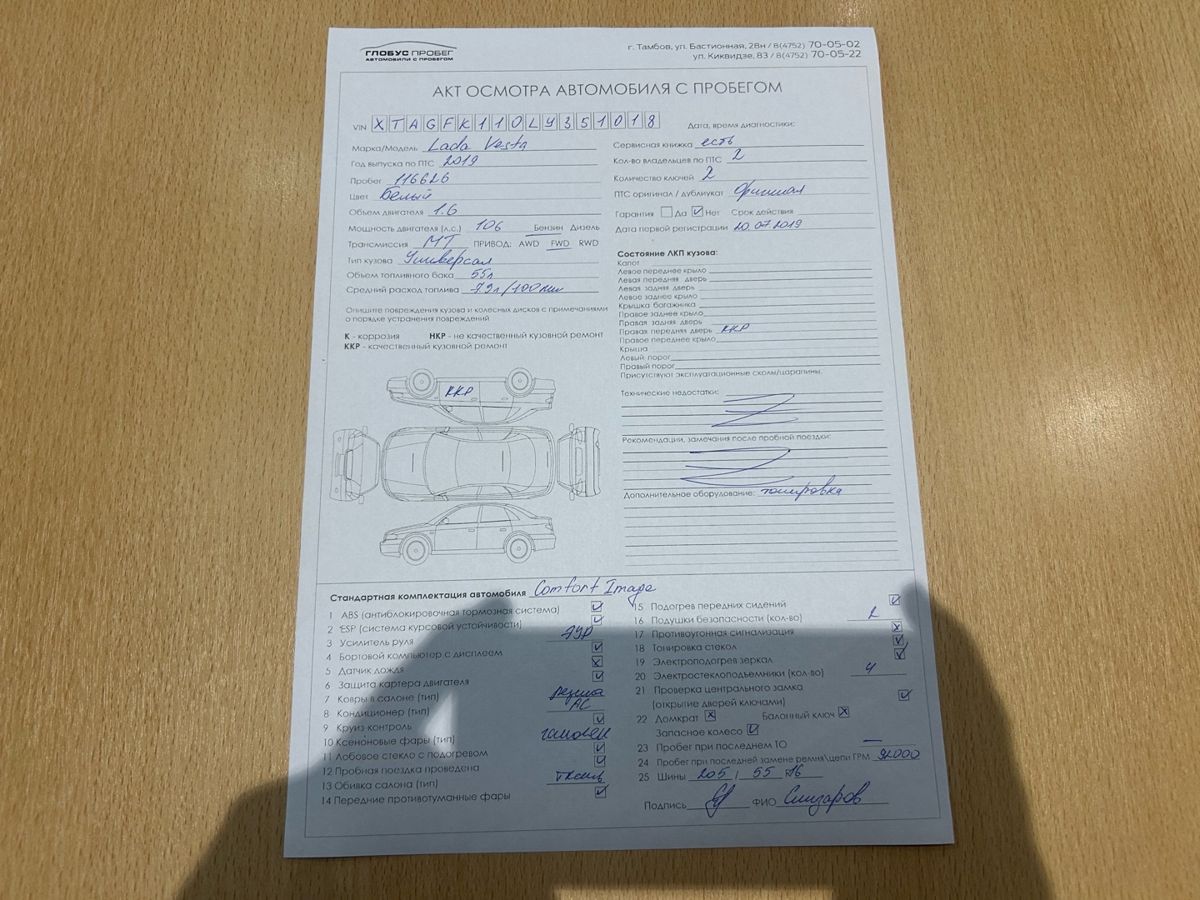 ГЛОБУС ПРОБЕГ
АВТОМОБИЛИ С ПРОБЕГОМ
г. Тамбов, ул. Бастионная, 28н / 8(4752) 70-05-02
ул. Киквидзе, 83 / 8(4752) 70-05-22
АКТ ОСМОТРА АВТОМОБИЛЯ С ПРОБЕГОМ
VIN XTAGFK110LY351018
Дата, время диагностики:
Марка/Модель Lada Vesta
Год выпуска по ПТС 2019
Пробег 116626
Цвет Белый
Объем двигателя 1.6
Мощность двигателя (л.с.) 106 Бензин Дизель
Трансмиссия МТ ПРИВОД: AWD FWD RWD
Тип кузова Универсал
Объем топливного бака 55л
Средний расход топлива 7.9л/100км
Сервисная книжка есть
Кол-во владельцев по ПТС 2
Количество ключей 2
ПТС оригинал / дубликат Оригинал
Гарантия Да Нет Срок действия
Дата первой регистрации 20.07.2019
Опишите повреждения кузова и колесных дисков с примечаниями
о порядке устранения повреждений
К - коррозия НКР - не качественный кузовной ремонт
ККР - качественный кузовной ремонт
ККР
Состояние ЛКП кузова:
Капот
Левое переднее крыло
Левая передняя дверь
Левая задняя дверь
Левое заднее крыло
Крышка багажника
Правое заднее крыло
Правая задняя дверь
Правая передняя дверь ККР
Правое переднее крыло
Крыша
Левый порог
Правый порог
Присутствуют эксплуатационные сколы/царапины.
Технические недостатки:
Рекомендации, замечания после пробной поездки:
Дополнительное оборудование: тонировка
Стандартная комплектация автомобиля Comfort Image
1 ABS (антиблокировочная тормозная система)
2 ESP (система курсовой устойчивости)
3 Усилитель руля ЭУР
4 Бортовой компьютер с дисплеем
5 Датчик дождя
6 Защита картера двигателя
7 Ковры в салоне (тип) Резина
8 Кондиционер (тип) AC
9 Круиз-контроль
10 Ксеноновые фары (тип) галоген
11 Лобовое стекло с подогревом
12 Пробная поездка проведена
13 Обивка салона (тип) Ткань
14 Передние противотуманные фары
15 Подогрев передних сидений
16 Подушки безопасности (кол-во) 2
17 Противоугонная сигнализация
18 Тонировка стекол
19 Электроподогрев зеркал
20 Электростеклоподъемники (кол-во) 4
21 Проверка центрального замка
(открытие дверей ключами)
22 Домкрат Балонный ключ
Запасное колесо
23 Пробег при последнем ТО —
24 Пробег при последней замене ремня\цепи ГРМ 92000
25 Шины 205 / 55 16
Подпись ФИО